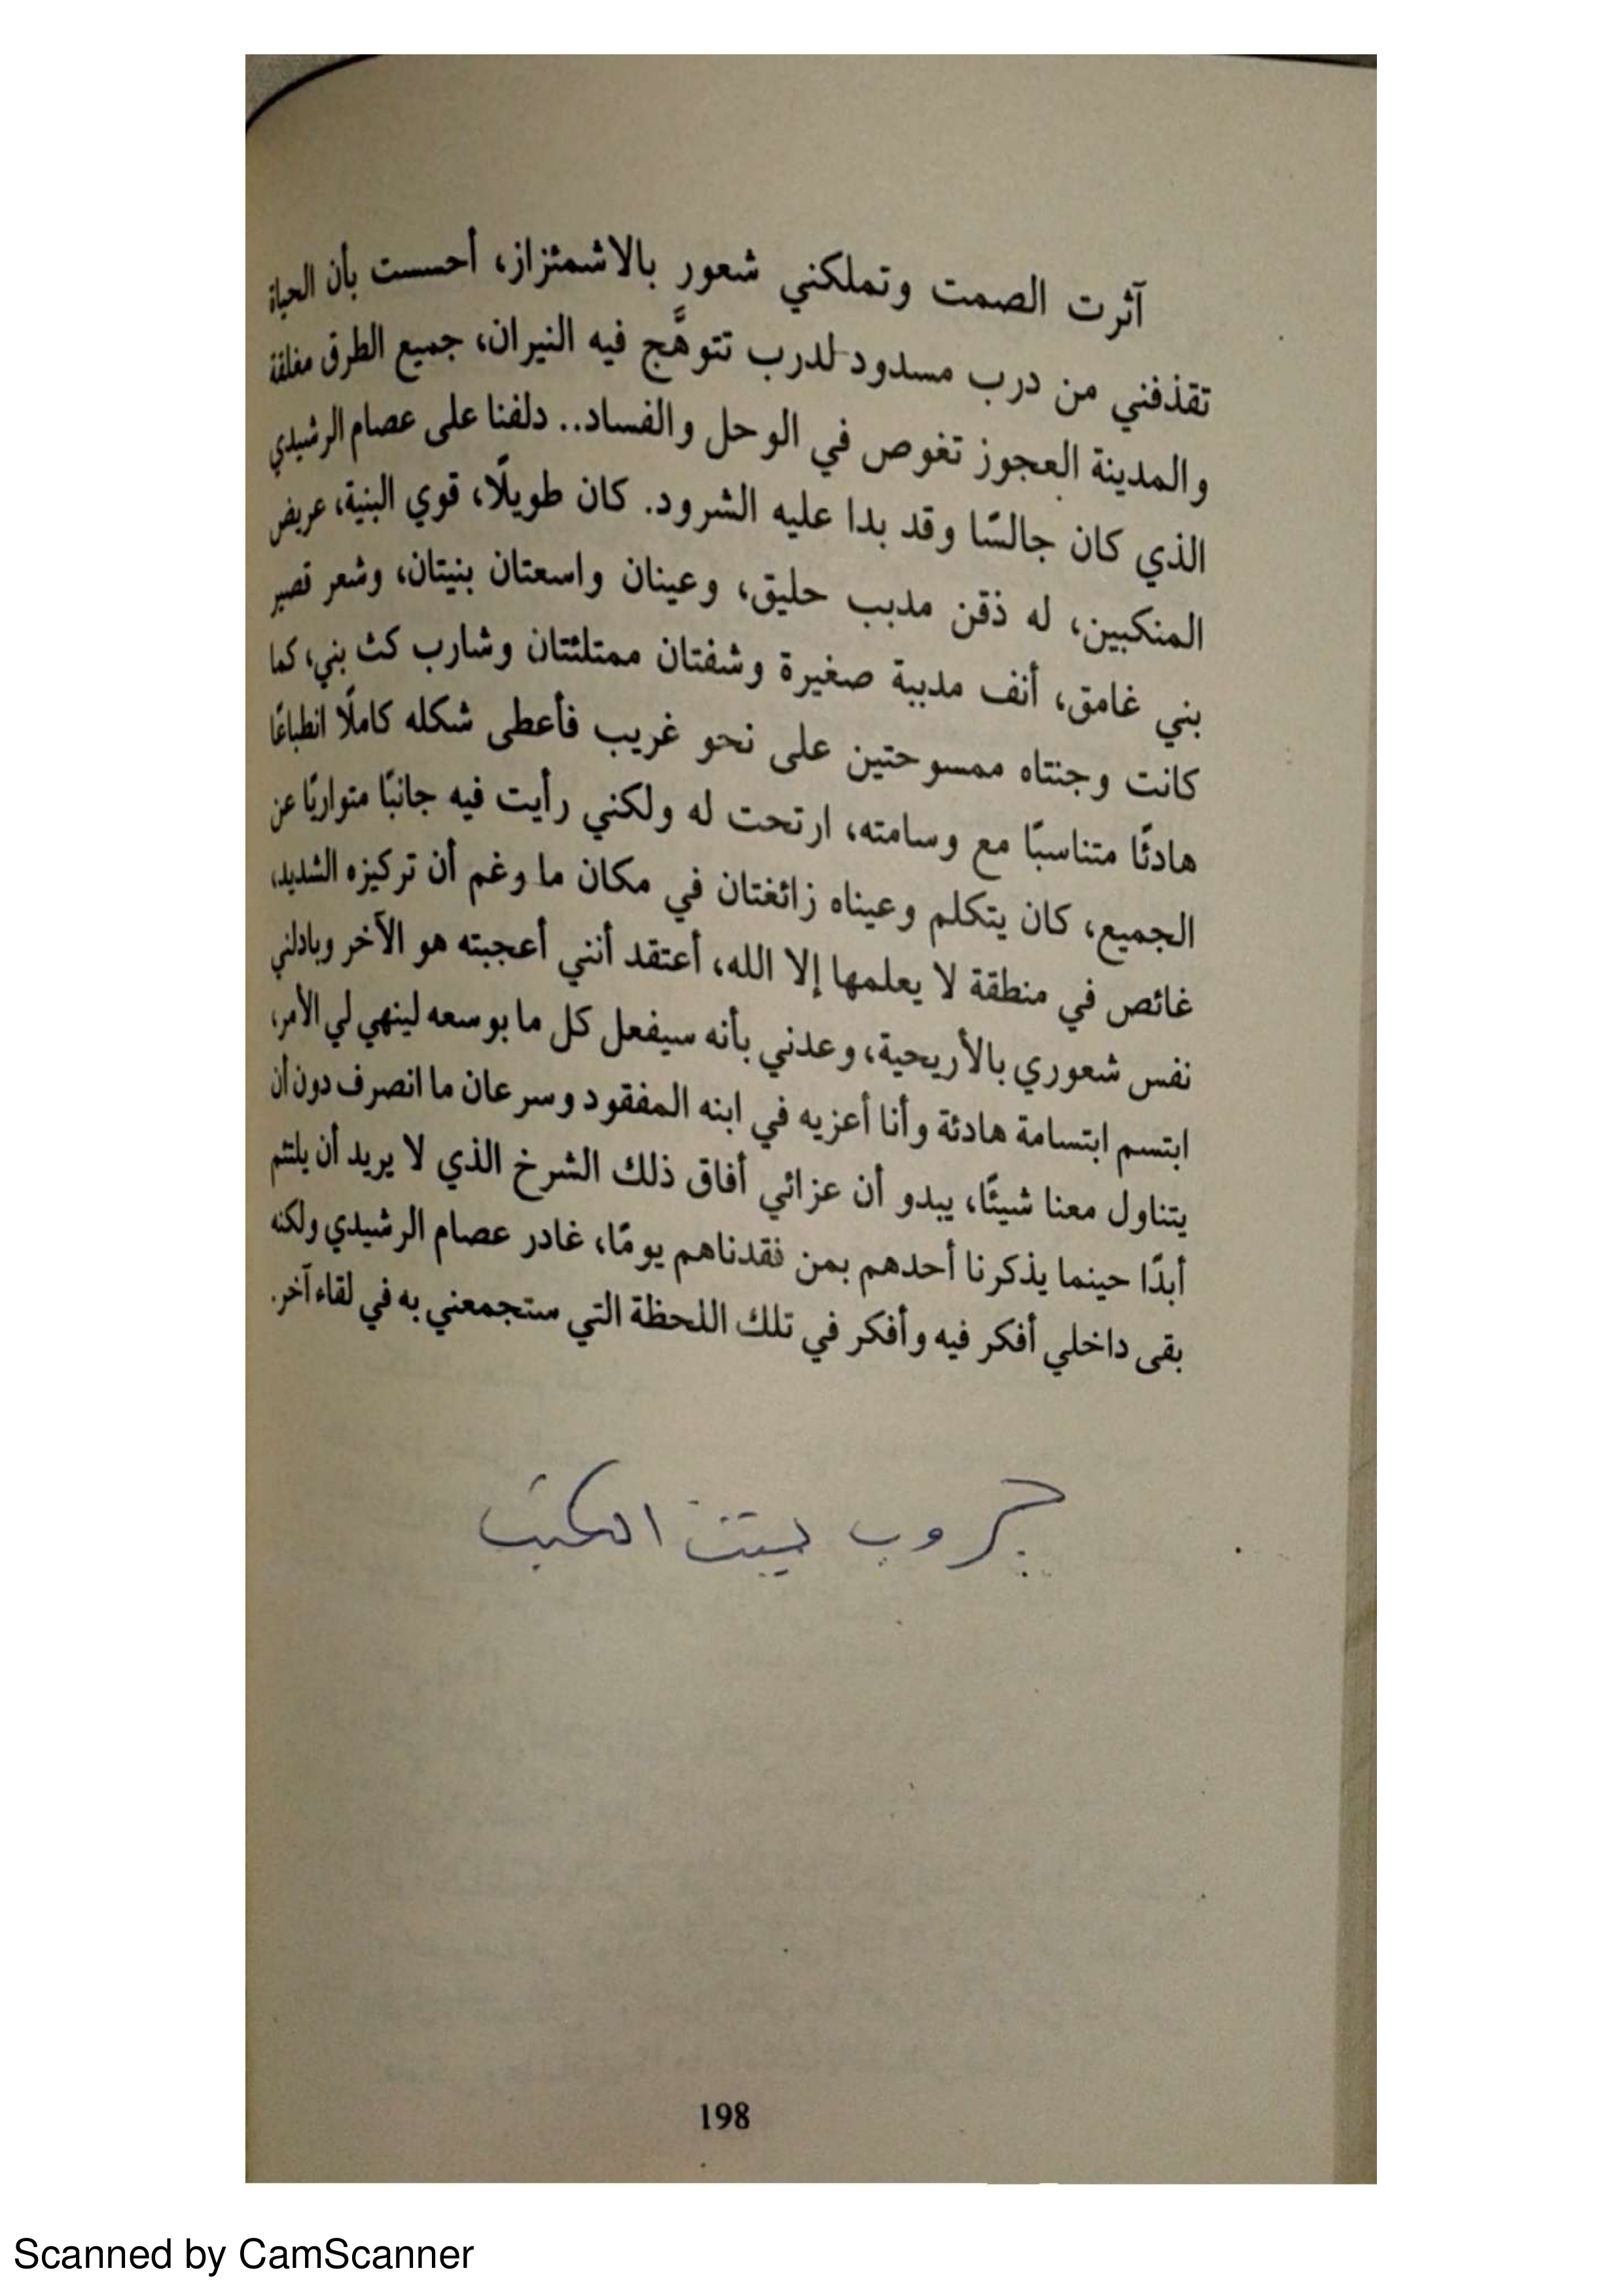 آثرت الصمت وتملكني شعور بالاشمئزاز، أحسست بأن الحياة
تقذفني من درب مسدود لدرب تتوهَّج فيه النيران، جميع الطرق مغلقة
والمدينة العجوز تغوص في الوحل والفساد.. دلفنا على عصام الرشيدي
الذي كان جالسًا وقد بدا عليه الشرود. كان طويلًا، قوي البنية، عريض
المنكبين، له ذقن مدبب حليق، وعينان واسعتان بنيتان، وشعر قصير
بني غامق، أنف مدببة صغيرة وشفتان ممتلئتان وشارب كث بني، كما
كانت وجنتاه ممسوحتين على نحو غريب فأعطى شكله كاملًا انطباعًا
هادئًا متناسبًا مع وسامته، ارتحت له ولكني رأيت فيه جانبًا متواريًا عن
الجميع، كان يتكلم وعيناه زائغتان في مكان ما وغم أن تركيزه الشديد،
غائص في منطقة لا يعلمها إلا الله، أعتقد أنني أعجبته هو الآخر وبادلني
نفس شعوري بالأريحية، وعدني بأنه سيفعل كل ما بوسعه لينهي لي الأمر،
ابتسم ابتسامة هادئة وأنا أعزيه في ابنه المفقود وسرعان ما انصرف دون أن
يتناول معنا شيئًا، يبدو أن عزائي أفاق ذلك الشرخ الذي لا يريد أن يلتئم
أبدًا حينما يذكرنا أحدهم بمن فقدناهم يومًا، غادر عصام الرشيدي ولكنه
بقى داخلي أفكر فيه وأفكر في تلك اللحظة التي ستجمعني به في لقاء آخر.
جروب بيت الكتب
198
Scanned by CamScanner